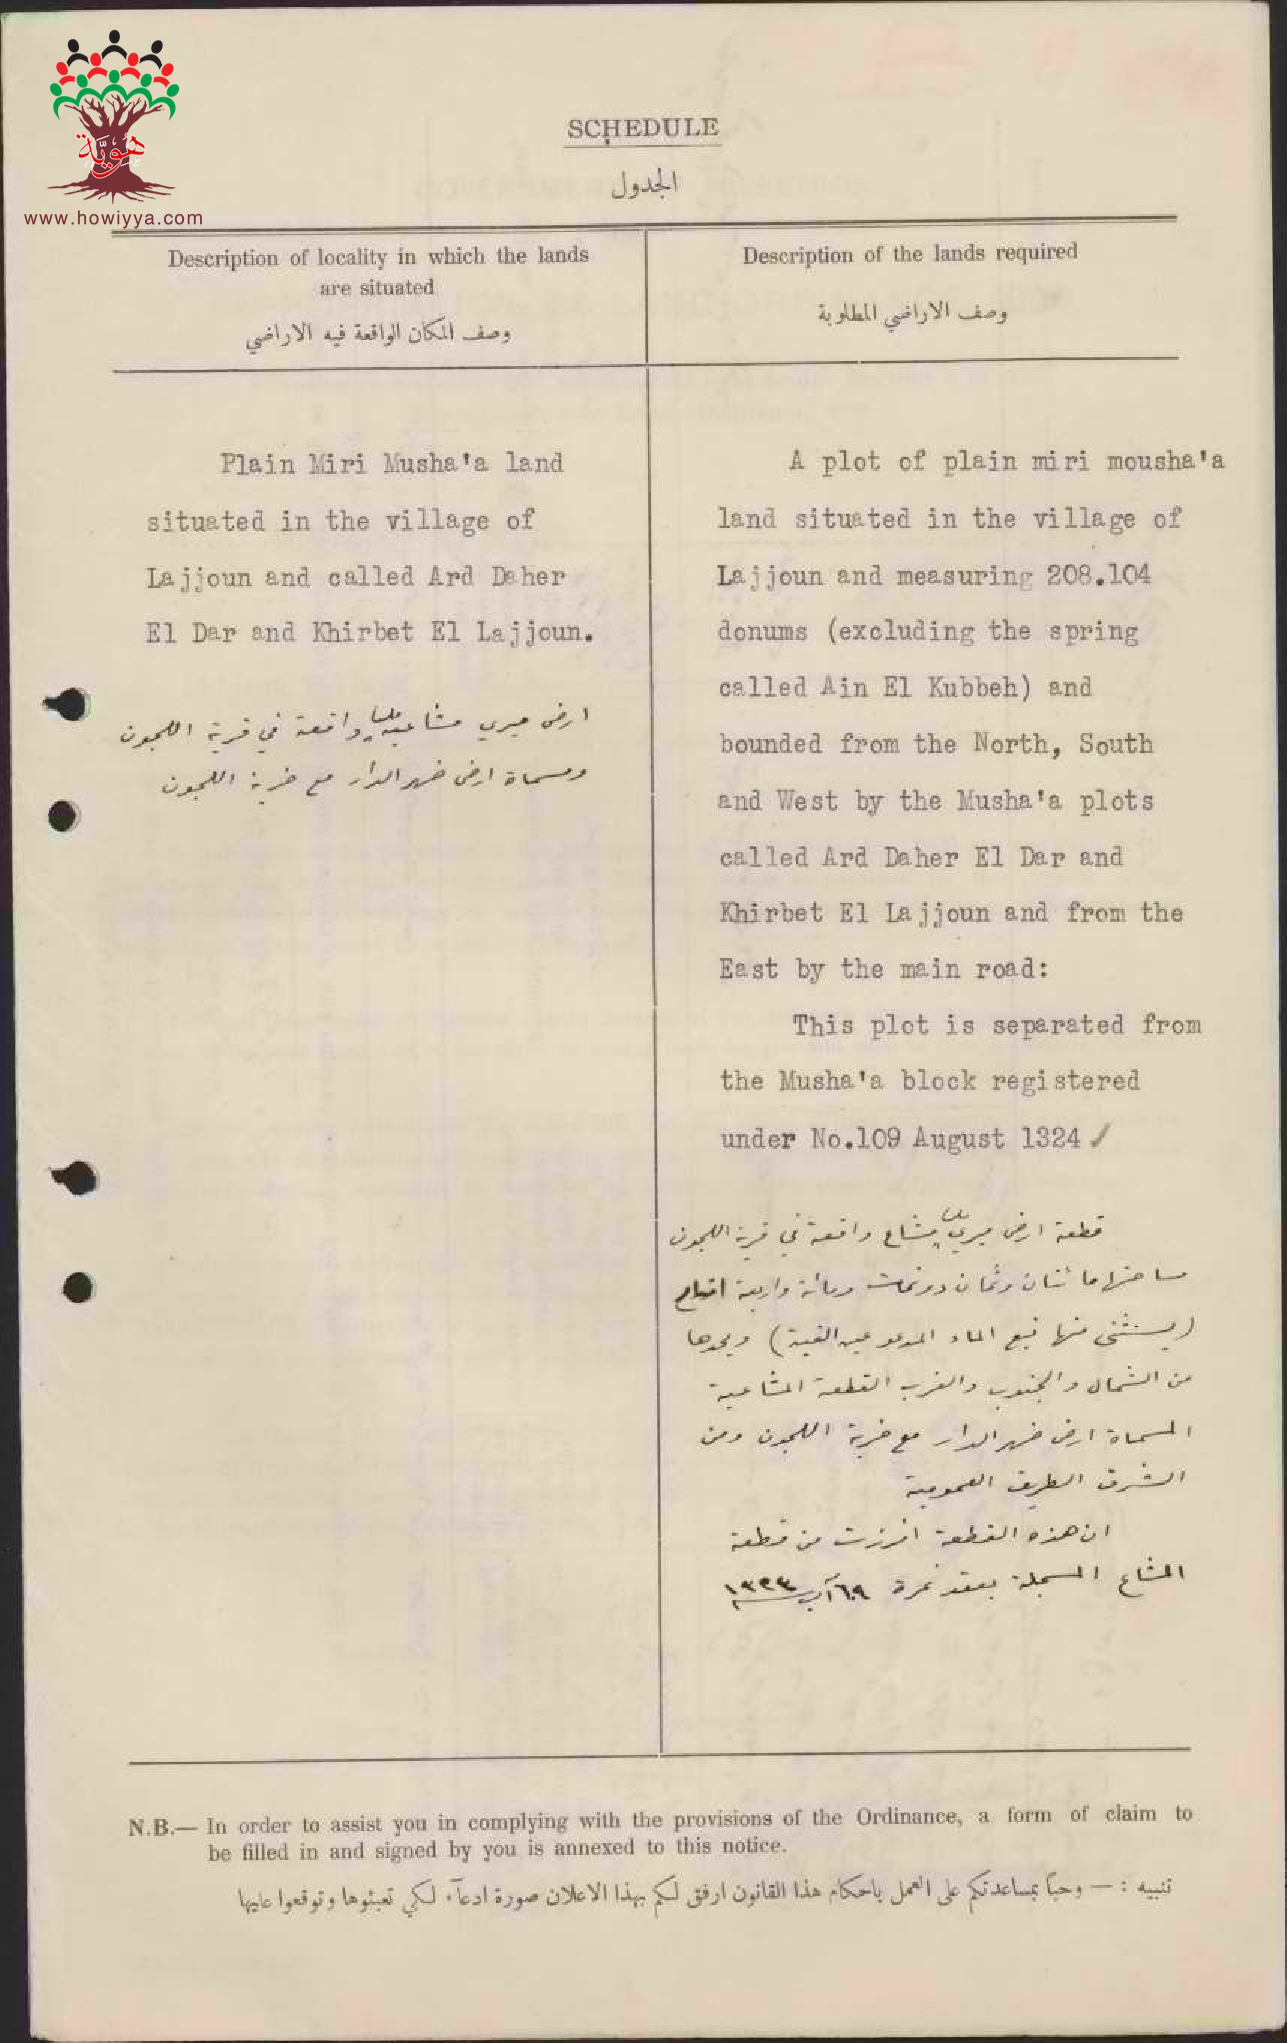 هوية
www.howiyya.com
SCHEDULE
الجدول
Description of locality in which the lands
are situated
وصف المكان الواقعة فيه الاراضي
Description of the lands required
وصف الاراضي المطلوبة
Plain Miri Musha'a land
situated in the village of
Lajjoun and called Ard Daher
El Dar and Khirbet El Lajjoun.
ارض ميري مشاعية واقعة في قرية اللجون
ومسماة ارض ضهر الدار مع خربة اللجون
A plot of plain miri mousha'a
land situated in the village of
Lajjoun and measuring 208.104
donums (excluding the spring
called Ain El Kubbeh) and
bounded from the North, South
and West by the Musha'a plots
called Ard Daher El Dar and
Khirbet El Lajjoun and from the
East by the main road:
This plot is separated from
the Musha'a block registered
under No.109 August 1324
قطعة ارض ميري مشاع واقعة في قرية اللجون
مساحتها مائتان وثمان دونمات ومائة واربعة
(يستثنى منها نبع الماء المدعو عين القبة) ويحدها
من الشمال والجنوب والغرب القطعة المشاعية
المسماة ارض ضهر الدار مع خربة اللجون ومن
الشرق الطريق العمومية
ان هذه القطعة افرزت من قطعة
المشاع المسجلة بعقد نمرة آب
N.B.— In order to assist you in complying with the provisions of the Ordinance, a form of claim to
be filled in and signed by you is annexed to this notice.
تنبيه : — وحباً بمساعدتكم على العمل باحكام هذا القانون ارفق لكم بهذا الاعلان صورة ادعاء لكي تعبئوها وتوقعوا عليها